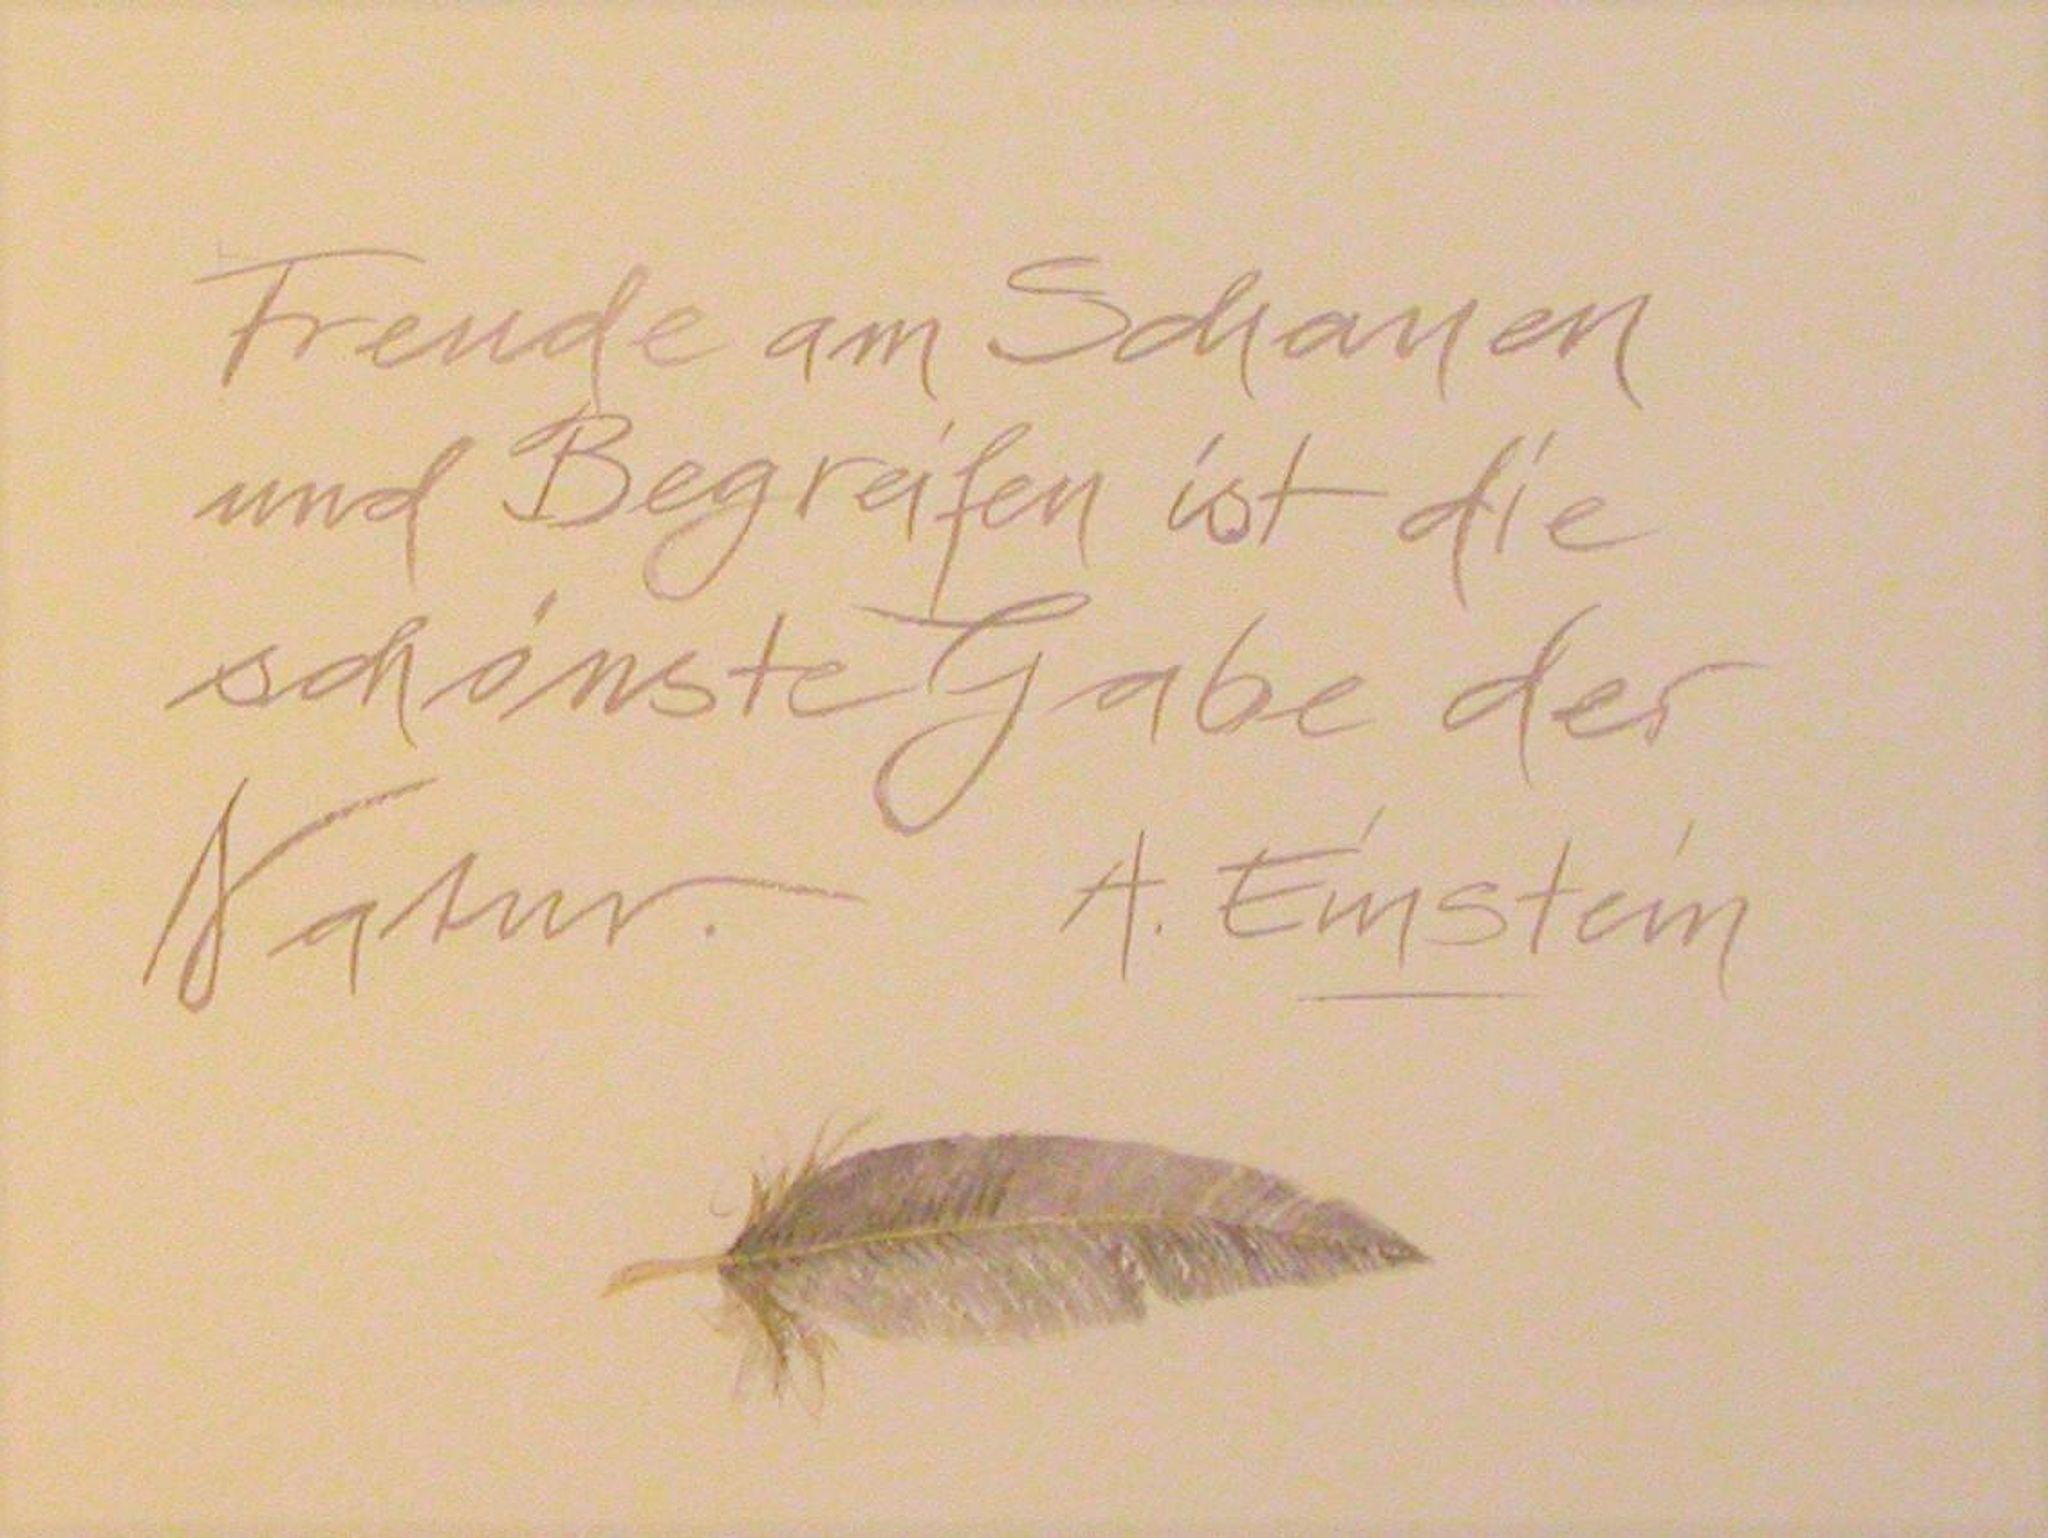 Freude am Schauen
und Begreifen ist die
schönste Gabe der
Natur. A. Einstein